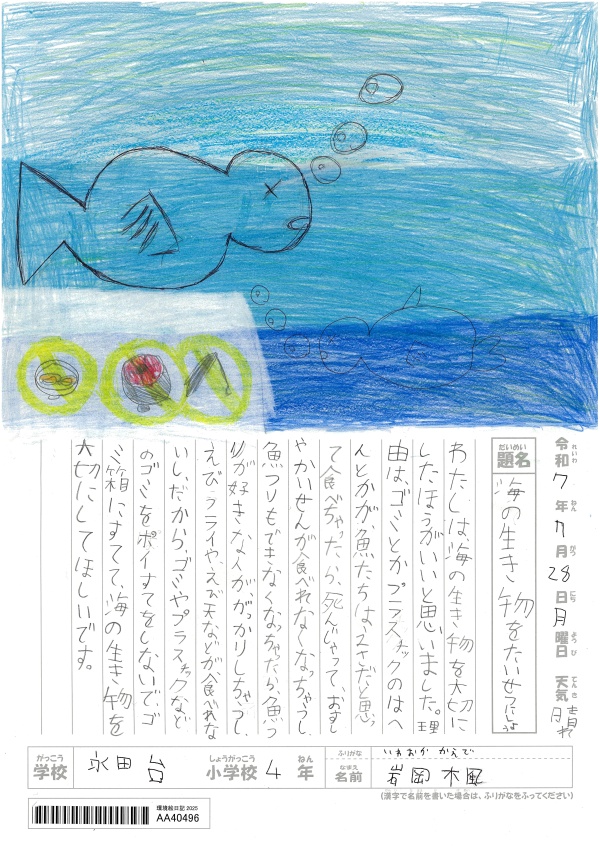 令和7年7月28日月曜日 天気 晴れ
題名 海の生き物をたいせつにしよう
わたしは海の生き物を大切に
したほうがいいと思いました。理
由は、ゴミとかプラスチックのはへ
んとかが、魚たちは、エサだと思っ
て食べちゃったら、死んじゃって、おすし
やかいせんが食べれなくなっちゃうし、
魚つりもできなくなっちゃたら、魚つ
りが好きな人が、がっかりしちゃうし、
えびフライや、えび天などが食べれな
いし、だから、ゴミやプラスチックなど
のゴミをポイすてをしないで、ゴ
ミ箱にすてて、海の生き物を
大切にしてほしいです。
がっこう しょうがっこう ねん ふりがな いわおか かえで
学校 永田台 小学校 4年 なまえ 名前 岩岡 楓
(漢字で名前を書いた場合は、ふりがなをふってください)
環境絵日記 2025
AA40496